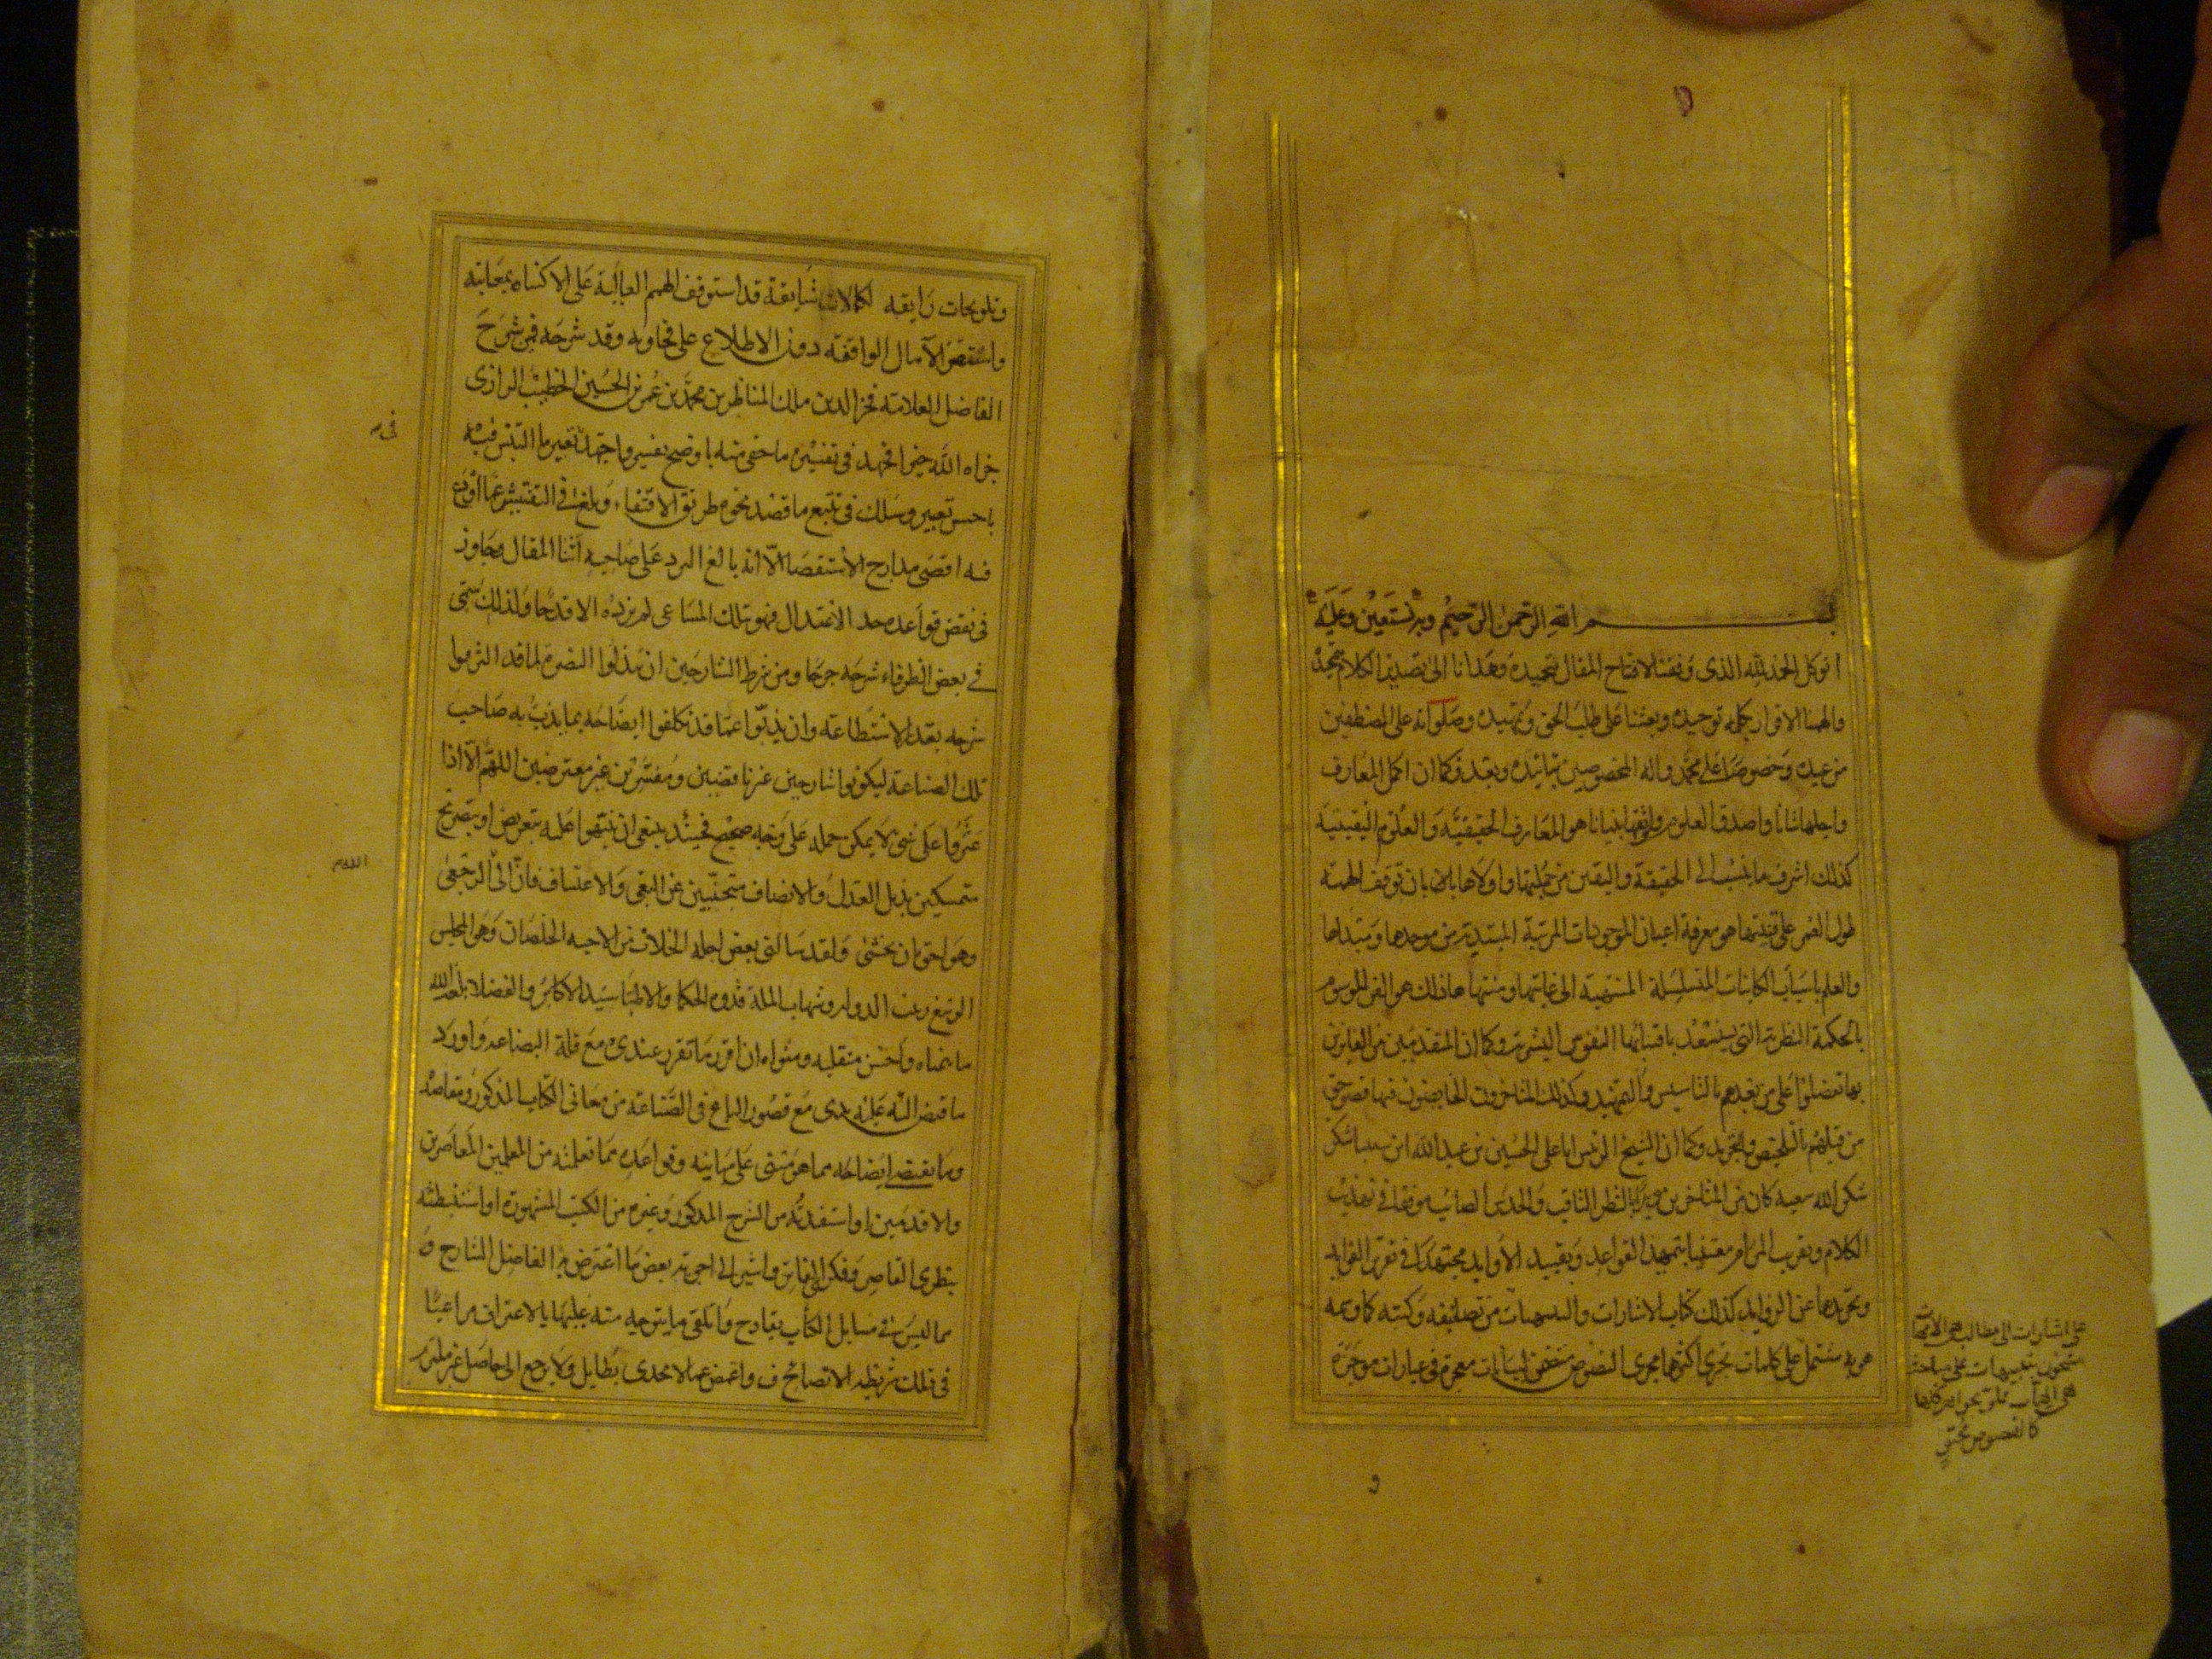 بسم الله الرحمن الرحيم وبه نستعين وعليه
اتوكل الحمد لله الذى وفقنا لافتتاح المقال بتحميده وهدانا الى تصدير الكلام بتمجيده
والهمنا الاقرار بكلمة توحيده وبعثنا على طلب الحق وتمهيده وصلواته على المصطفين
من عبيده وخصوصا على محمد وآله المخصوصين بتاييده وبعد فكما ان اكمل المعارف
واجلها شانا واصدق العلوم واوثقها بنيانا هو المعارف الحقيقية والعلوم اليقينية
كذلك اشرف ما ينسب الى الحقيقة واليقين من جملتها واولاها بان توقف الهمة
طول العمر على قنيتها هو معرفة اعيان الموجودات المرتبة المبتدية من موجدها ومبداها
والعلم باسباب الكائنات المتسلسلة المنتهية الى غايتها ومنتهاها وذلك هو الفن الموسوم
بالحكمة النظرية التى يستعد باقتنائها النفوس البشرية وكما ان المتقدمين من الفايزين
بها تفضلوا على من بعدهم بالتاسيس والتمهيد وكذلك المتاخرون الخايضون فيها قضوا حق
من قبلهم بالتلخيص والتجريد وكما ان الشيخ الرئيس ابا على الحسين بن عبد الله ابن سينا شكر
شكر الله سعيه كان من المتاخرين مويدا بالنظر الثاقب والحدس الصائب موفقا فى تهذيب
الكلام وتقريب المرام معتنيا بتمهيد القواعد وتقييد الاوابد مجتهدا فى تقرير الفوايد
وتجريدها عن الزوايد كذلك كتاب الاشارات والتنبيهات من تصانيفه وكتبه كما وسمه
هو به مشتمل على كلمات تجرى اكثرها مجرى النصوص متضمن لبيانات معجزة فى عبارات موجزة
على اشارات الى مطالب هى الامهات
مشحون بتنبيهات على مباحث
هى المهمات مملو بجواهر كلها
كالفصوص محتو
و
وتلويحات رايقة لكمالات شايقة قد استوقف الهمم العالية على الاكتناه بمعانيه
واستقصر الآمال الواقفة دون الاطلاع على فحاويه وقد شرحه فيمن شرح
الفاضل العلامة فخر الدين ملك المناظرين محمد بن عمر بن الحسين الخطيب الرازى
جزاه الله خيرا فجهد فى تفسير ما خفى منه باوضح تفسير واجتهد تعبير ما التبس فيه
باحسن تعبير وسلك فى تتبع ما قصد نحوه طريق الاقتفاء وبلغ فى التفتيش عما اودع
فيه اقصى مدارج الاستقصا الا انه بالغ الرد على صاحبه اثنا المقال وجاوز
فى نقض قواعده حد الاعتدال فهو بتلك المساعى لم يزده الا قدحا ولذلك سمى
بعض الظرفاء شرحه جرحا ومن شرط الشارحين ان يبذلوا النصرة لما قد التزموا
شرحه بقدر الاستطاعة وان يذبوا عما قد تكلفوا ايضاحه بما يذب به صاحب
تلك الصناعة ليكونوا شارحين غير ناقضين ومفسرين غير معترضين اللهم الا اذا
عثروا على شى لا يمكن حمله على وجه صحيح فحينئذ ينبغى ان ينبهوا عليه بتعريض او تصريح
متمسكين بذيل العدل والانصاف متجنبين عن البغى والاعتساف فان الى الرجعى
وهو احق بان يخشى ولقد سالنى بعض اجلة الخلان من الاحبة الخلصان وهو المجلس
الرفيع ربيب الدولة وشهاب الملة قدوة الحكما والاطبا سيد الاكابر والفضلا بلغه الله
ما يتمناه واحسن منقلبه ومثواه ان اقرر ما تقرر عندى مع قلة البضاعة واورد
ما قبض الله عليه يدى مع قصور الباع فى الصناعة من معانى الكتاب المذكور ومقاصده
وما يقتضى ايضاحه مما هو مبتنى على مبانيه وقواعده مما تعلمته من المعلمين المعاصرين
والاقدمين او استفدته من الشرح المذكور وغيره من الكتب المشهورة او استنبطته
بنظرى القاصر وفكرى الفاتر واشير الى اجوبة بعض ما اعترض به الفاضل الشارح و
مما ليس فى مسايل الكتاب بقادح واتلقى ما يتوجه منه عليها بالاعتراف مراعيا
فى ذلك شريطة الانصاف واغمض عما لا يجدى بطايل ولا يرجع الى حاصل غير ملتزم
فى
الله